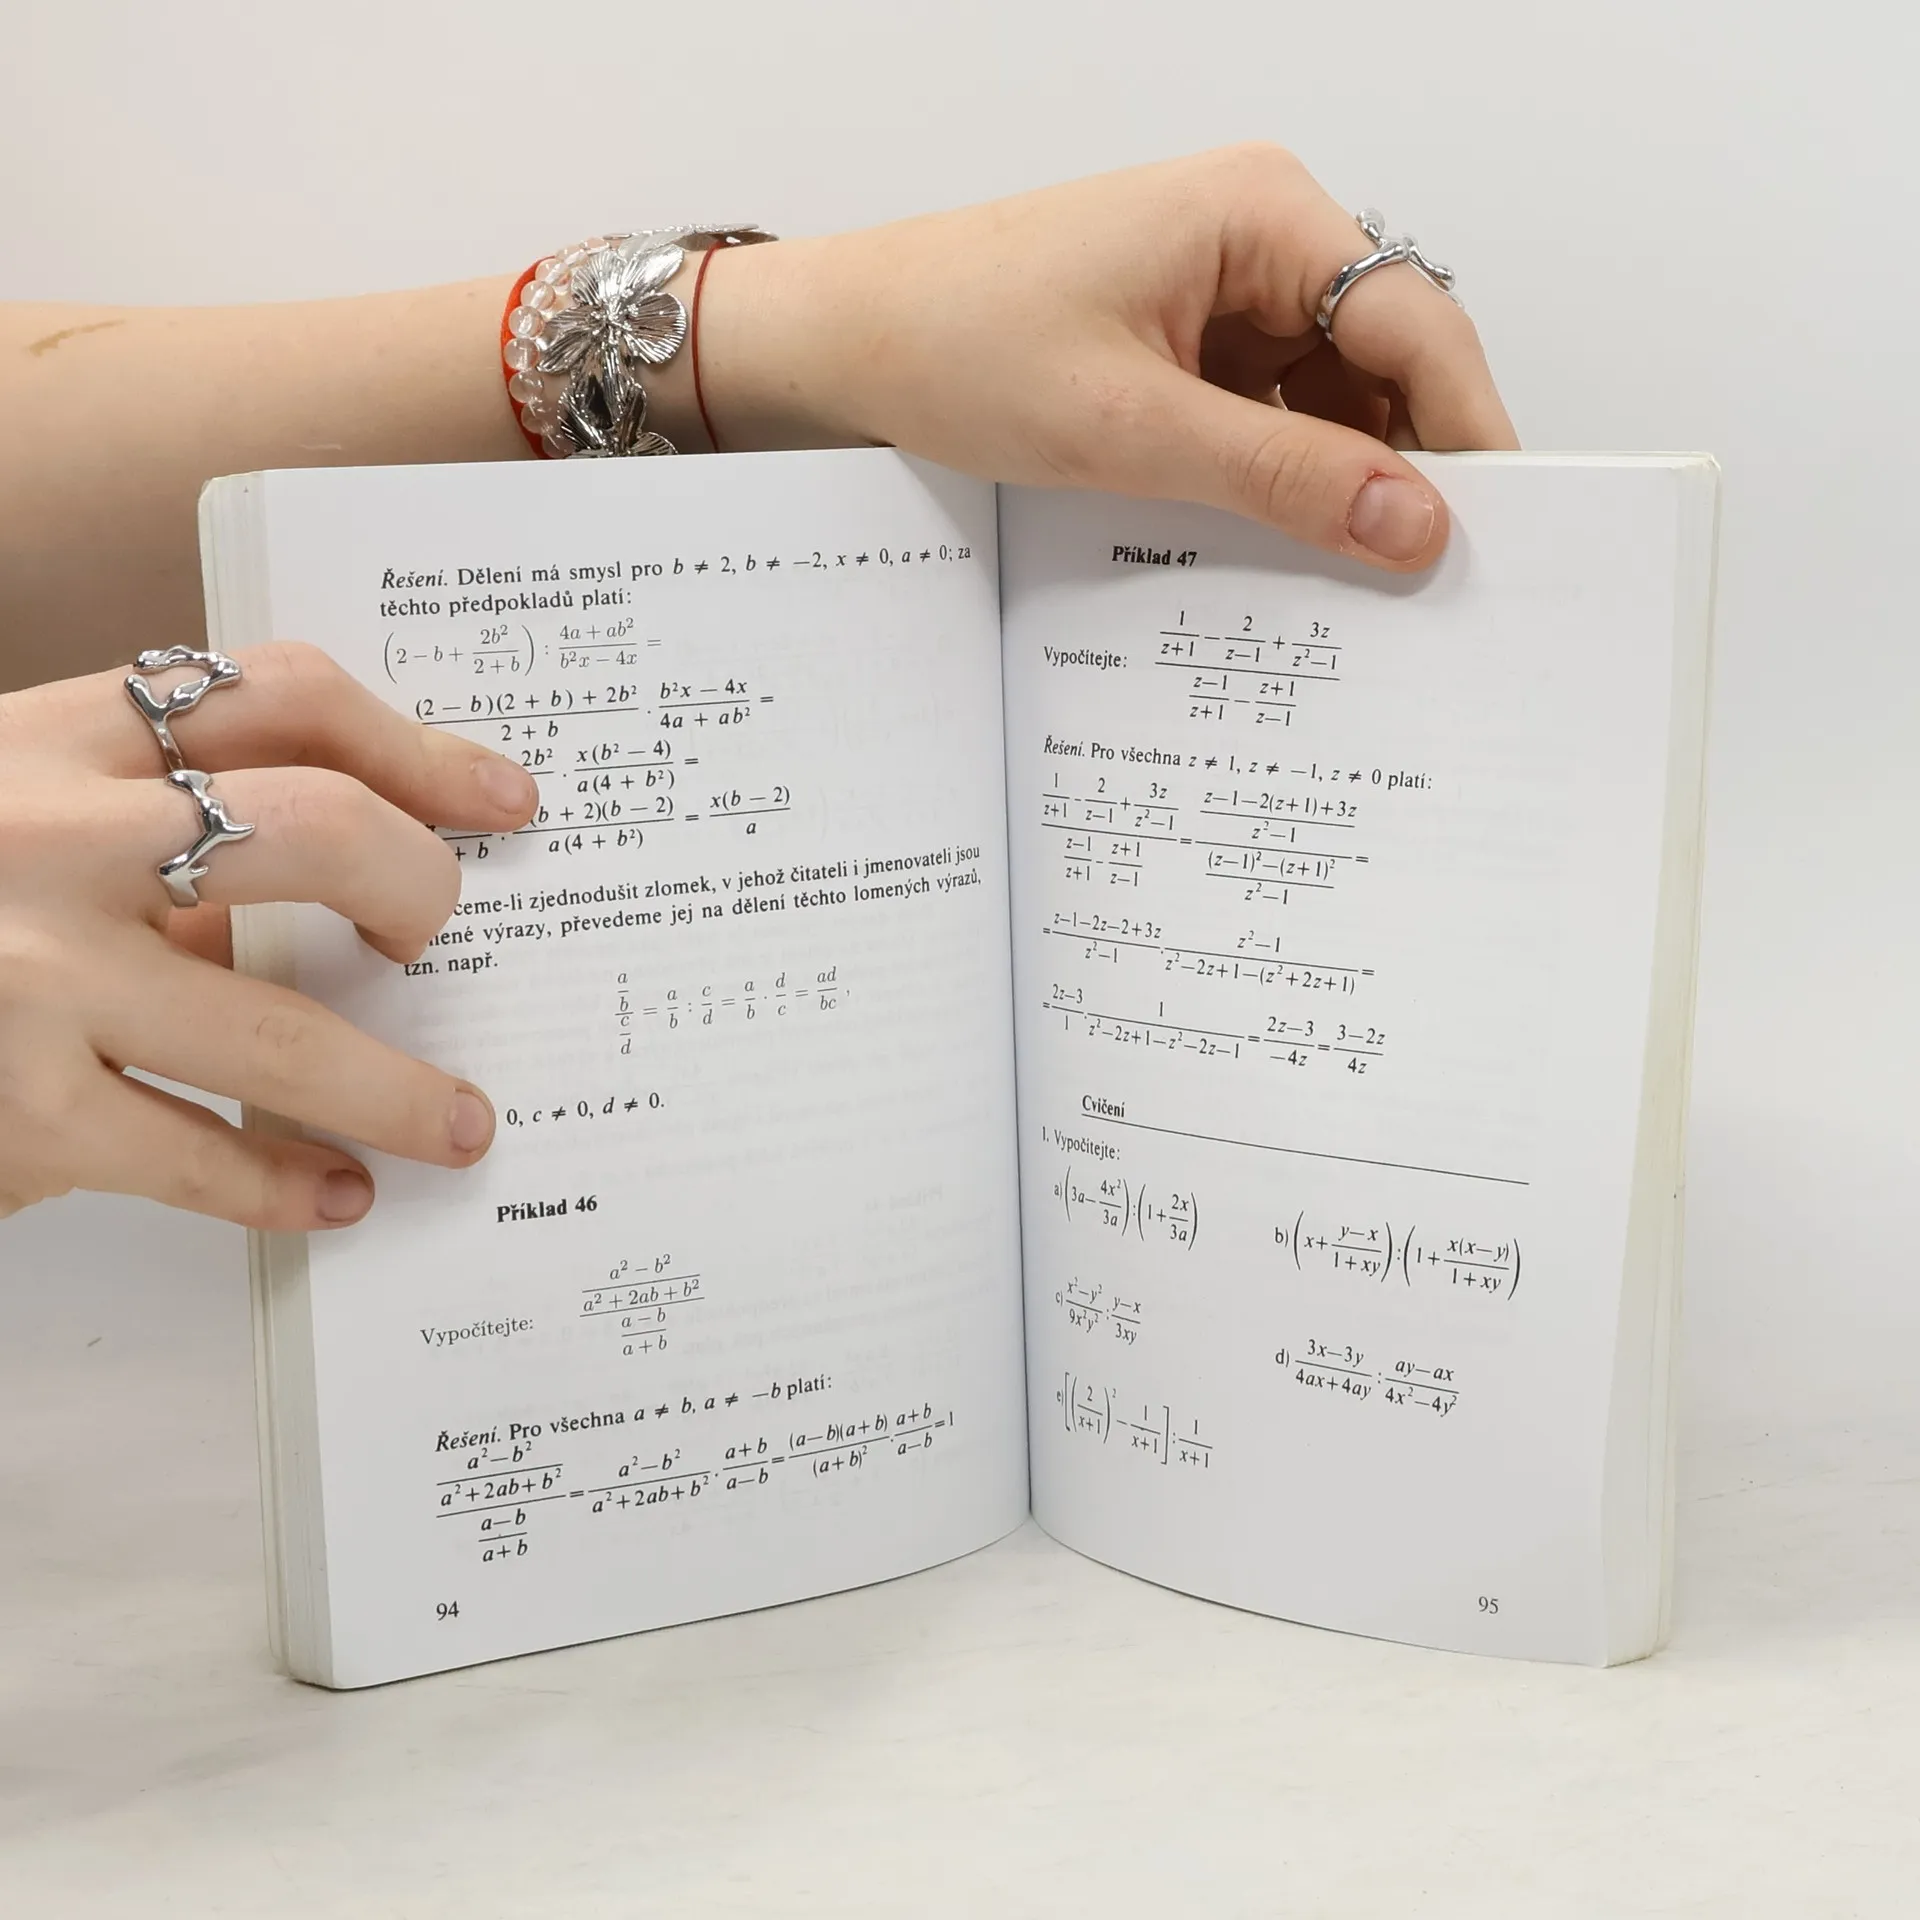 Řešení. Dělení má smysl pro b ≠ 2, b ≠ −2, x ≠ 0, a ≠ 0; za
těchto předpokladů platí:
(2 − b + 2b²/(2 + b)) : (4a + ab²)/(b²x − 4x) =
((2 − b)(2 + b) + 2b²)/(2 + b) · (b²x − 4x)/(4a + ab²) =
2b² · x(b² − 4)/(a(4 + b²)) =
+ b · (b + 2)(b − 2)/(a(4 + b²)) = x(b − 2)/a
zjednodušit zlomek, v jehož čitateli i jmenovateli jsou
výrazy, převedeme jej na dělení těchto lomených výrazů,
tzn. např.
(a/b)/(c/d) = a/b : c/d = a/b · d/c = ad/bc ,
0, c ≠ 0, d ≠ 0.
Příklad 46
Vypočítejte: ((a² − b²)/(a² + 2ab + b²))/((a − b)/(a + b))
Řešení. Pro všechna a ≠ b, a ≠ −b platí:
((a²−b²)/(a²+2ab+b²))/((a−b)/(a+b)) = (a²−b²)/(a²+2ab+b²) · (a+b)/(a−b) = ((a−b)(a+b))/(a+b)² · (a+b)/(a−b) = 1
94
Příklad 47
Vypočítejte: (1/(z+1) − 2/(z−1) + 3z/(z²−1))/((z−1)/(z+1) − (z+1)/(z−1))
Řešení. Pro všechna z ≠ 1, z ≠ −1, z ≠ 0 platí:
(1/(z+1) − 2/(z−1) + 3z/(z²−1))/((z−1)/(z+1) − (z+1)/(z−1)) = ((z−1−2(z+1)+3z)/(z²−1))/(((z−1)²−(z+1)²)/(z²−1)) =
= (z−1−2z−2+3z)/(z²−1) · (z²−1)/(z²−2z+1−(z²+2z+1)) =
= (2z−3)/1 · 1/(z²−2z+1−z²−2z−1) = (2z−3)/(−4z) = (3−2z)/4z
Cvičení
1. Vypočítejte:
a) (3a − 4x²/3a) : (1 + 2x/3a)
b) (x + (y−x)/(1+xy)) : (1 + x(x−y)/(1+xy))
c) (x²−y²)/(9x²y²) : (y−x)/(3xy)
d) (3x−3y)/(4ax+4ay) : (ay−ax)/(4x²−4y²)
e) [(2/(x+1))² − 1/(x+1)] : 1/(x+1)
95